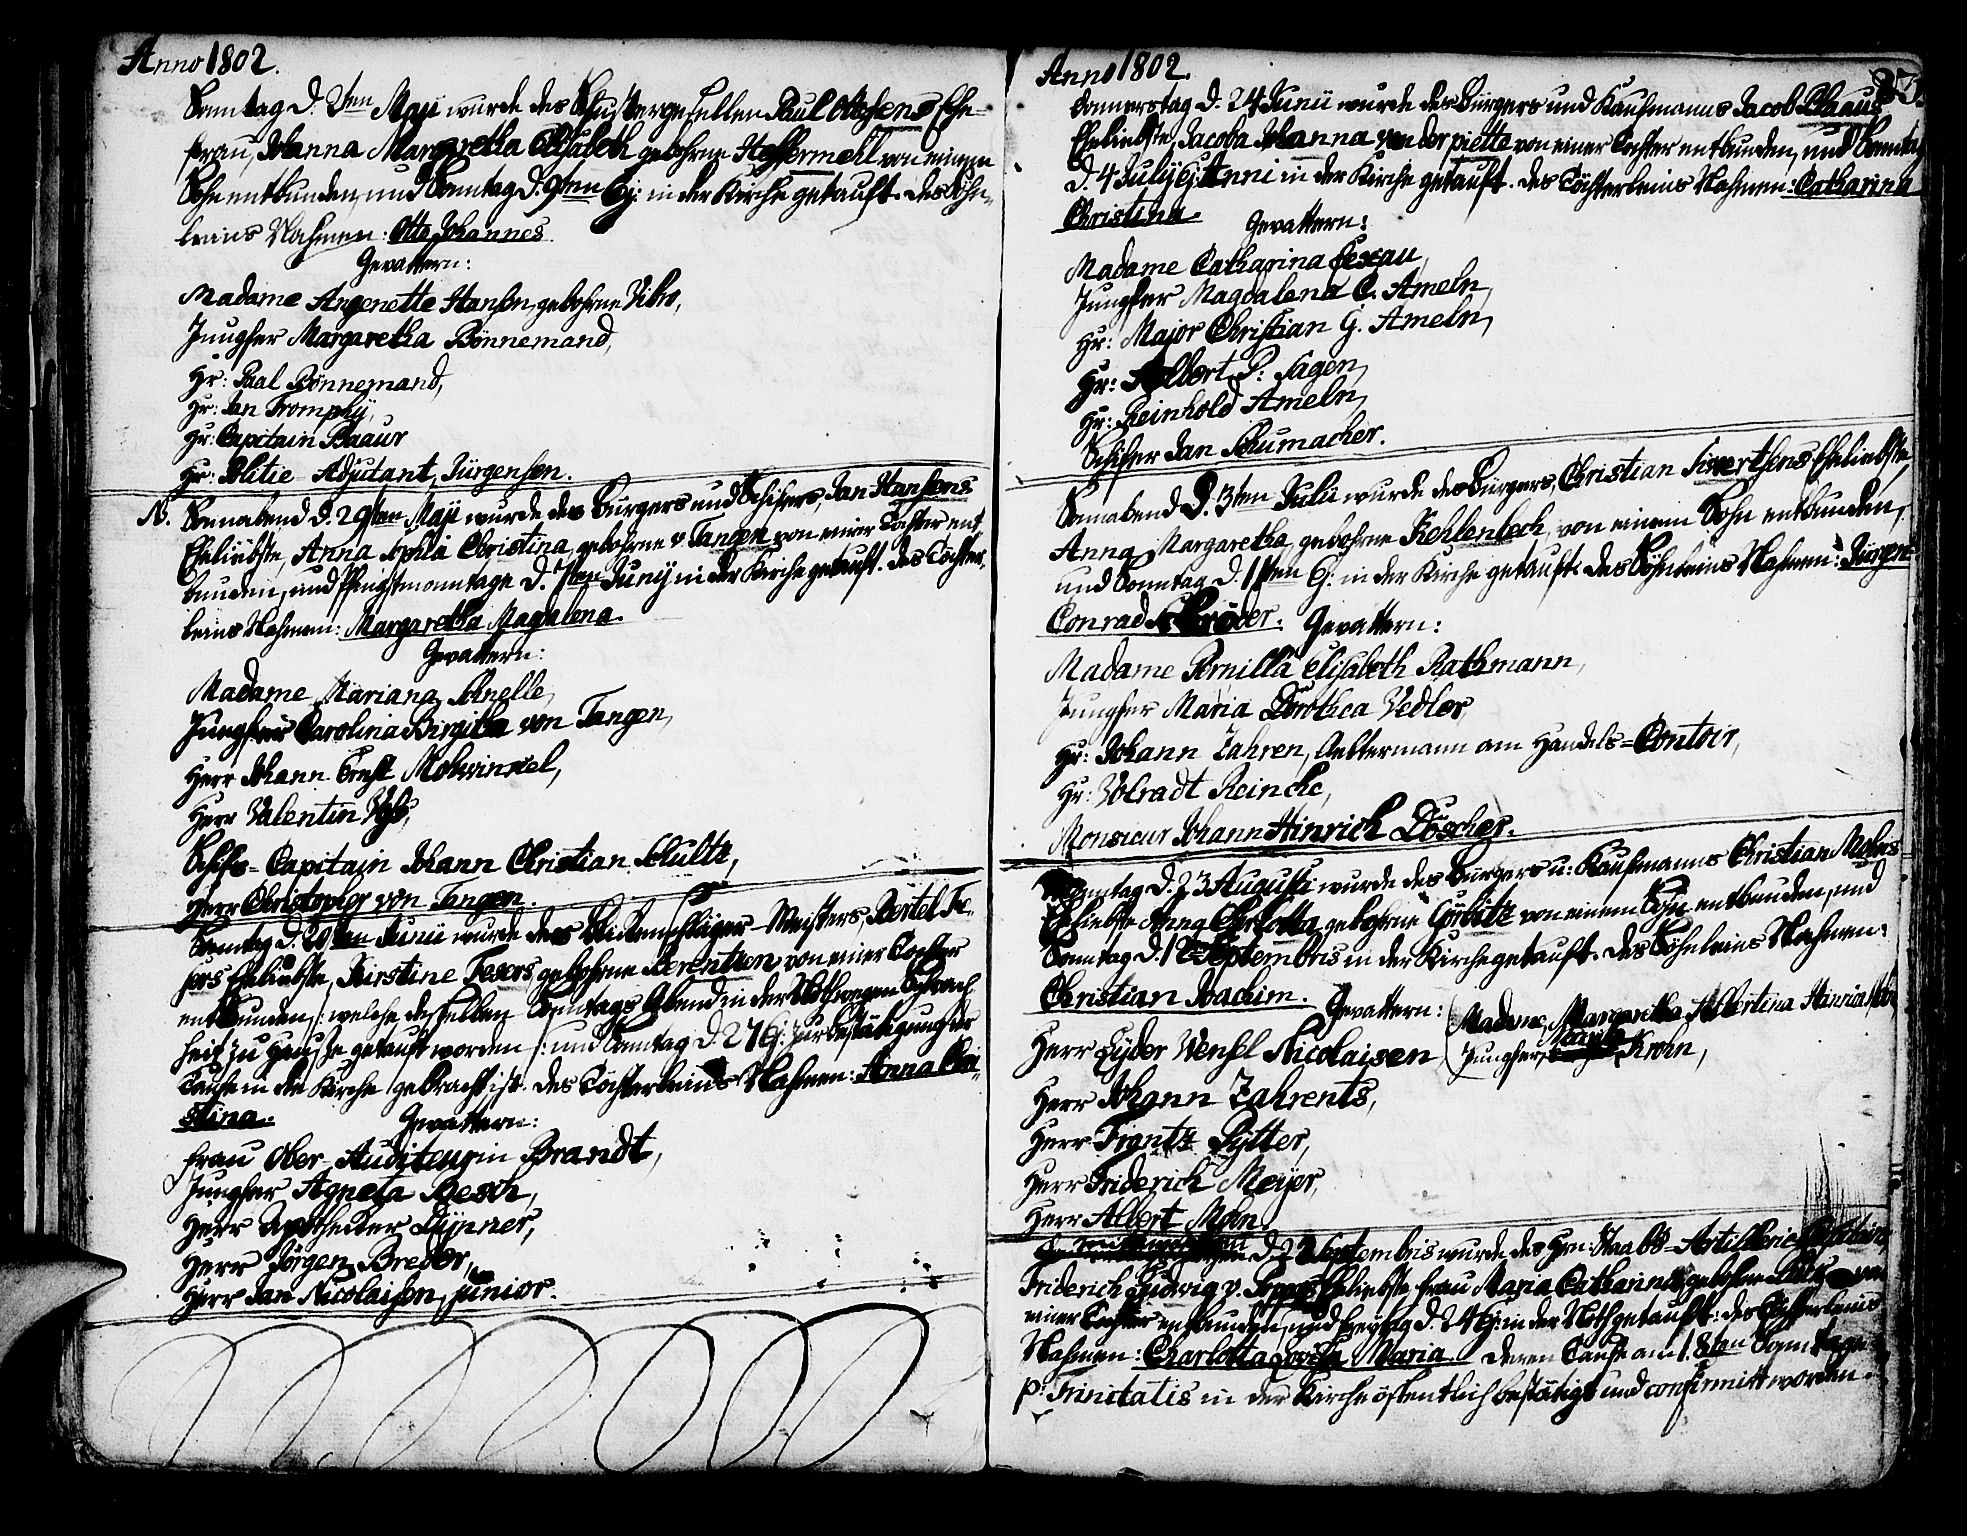 Anno 1802.
Sonntag d. 2ten Maji wurde des Schustergesellen Paul Ottesens Ehe-
frau, Johanna Margaretha Elisabeth gebohrne Heffermehl von einem
Sohn entbunden, und Sonntag d. 9ten Ej: in der Kirche getauft. Des Söhn-
leins Nahmen: Otto Johannes.
Gevattern:
Madame Angenette Hansen, gebohrne Vibro,
Jungfer Margaretha Bönnemand,
Hr: Paal Bönnemand,
Hr: Jan Tromphÿ,
Hr: Capitain Baaur
Hr: Politie-Adjutant, Jürgensen.
N. Sonnabend d. 29ten Maji wurde des Bürgers und Schifers, Jan Hansens
Eheliebste, Anna Sophia Christina, gebohrne v. Tangen von einer Tochter ent-
bunden, und Pfingstmonntage d. 7ten Junij in der Kirche getauft. Des Töchter-
leins Nahmen: Margaretha Magdalena.
Gevattern:
Madame Mariana Schnelle,
Jungfer Carolina Birgitha von Tangen,
Herr Johann Ernst Mohwinkel,
Herr Valentin Voss,
Schifs-Capitain Johann Christian Schultz,
Herr Christopher von Tangen.
Sonntag d. 20ten Junii wurde des Meisters, Bertel Fe-
sers Eheliebste, Kirstine Fesers gebohrne Berentsen von einer Tochter
entbunden /: welche desselben Sonntags Abend in der Nothwegen Schwach-
heit zu Hausse getauft worden :/ und Sonntag d. 27 Ej: zur Bestätigung der
Taufe in die Kirche gebracht ist. Des Töchterleins Nahmen: Anna Chri-
stina.
Gevattern:
Frau Ober-Auditeurin Brandt,
Jungfer Agneta Besch,
Herr Apothecker Dÿnner,
Herr Jörgen Breder,
Herr Jan Nicolaisen, junior.
Anno 1802.
Donnerstag d. 24 Junii wurde des Bürgers und Kaufmanns Jacob Blaauws
Eheliebste, Jacoba Johanna van der piette von einer Tochter entbunden, und Sonntag
d. 4 Julij Ej: Anni in der Kirche getauft. Des Töchterleins Nahmen: Catharina
Christina.
Gevattern:
Madame Catharina Lexau,
Jungfer Magdalena C. Ameln,
Hr: Major Christian G. Ameln,
Hr: Albert P: Fagen,
Hr: Reinhold Ameln,
Schifer Jan Schumacher.
Sonnabend d. 3ten Julii wurde des Bürgers, Christian Sivertsens Eheliebste,
Anna Margaretha, gebohrne Kohlenbech, von einem Sohn entbunden,
und Sonntag d. 11ten Ej: in der Kirche getauft. Des Söhnleins Nahmen: Jürgen
Conrad Schröder. Gevattern:
Madame Pernilla Elisabeth Rathmann,
Jungfer Maria Dorothea Vedler,
Hr: Johann Zahren, Aeltermann am Handels-Contoir,
Hr: Volradt Reincke,
Monsieur Johann Hinrich Döscher.
Montag d. 23 Augusti wurde des Bürgers u: Kaufmanns Christian Mohns
Eheliebste Anna Charlotta, gebohrne von einem Sohn entbunden, und
Sonntag d. 12 Septembris in der Kirche getauft. Des Söhnleins Nahmen:
Christian Joachim.
Gevattern:
Madame Margaretha Albertina Hinrica
Herr Lÿder Wensel Nicolaisen
Jungfer Maria Krohn,
Herr Johann Zahrents,
Herr Frantz Pÿtter,
Herr Friderich Meijer,
Herr Albert Mohn.
d. 22 Septembris wurde des Hrn: Staabs-Artillerie Capitain
Friderich Ludwig v. Eheliebste, Frau Maria Catharina gebohrne von
einer Tochter entbunden, und Freytag d. 24 Ej: in der Noth getauft: des Töchterleins
Nahmen: Charlotta Lovisa Maria. Deren Taufe am 18ten Sonntage
p: Trinitatis in der Kirche öffentlich bestätigt und confirmirt worden.